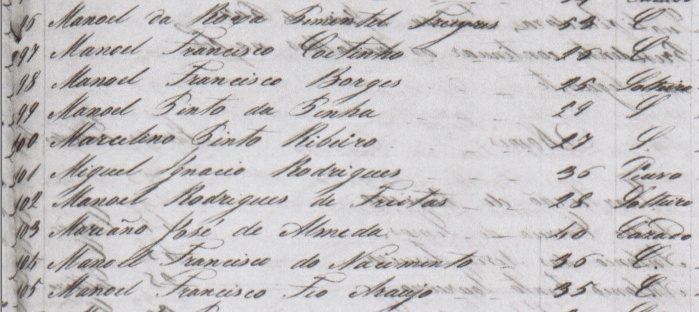 96 Manoel da Rosa Pimentel 53 C.
97 Manoel Francisco Coitinho C.
98 Manoel Francisco Borges 25 Solteiro
99 Manoel Pinto da Penha 29 S
100 Marcelino Pinto Ribeiro 27 S.
101 Miguel Ignacio Rodrigues 36
102 Manoel Rodrigues de Freitas 28 Solteiro
103 Mariano José de Almeda 40 Cazado
104 Manoel Francisco do Nacimento 36 C.
105 Manoel Francisco Feo Araujo 35 C.